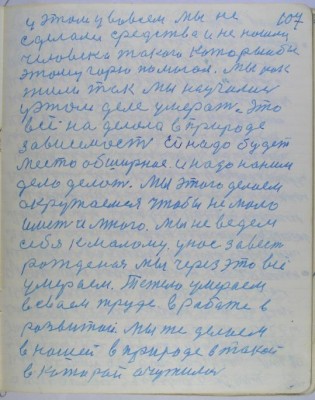 607
у этом у вовсем мы не
сделали средства и не нашли
человека такого который бы
этому горю помогал. Мы как
жили так мы научились
у этом деле умерать. Это
всё наделола в природе
зависимость ей надо будет
место обширное. и надо нашим
дело делать. Мы этого делаем
окружаемся чтобы не мало
иметь а много. Мы не ведем
себя к малому. у нас завист
рождения мы через это всё
умераем. Тежело умераем
в своем труде в работе в
розвитой. Мы же делаем
в нашей в природе в такой
в которай очутились